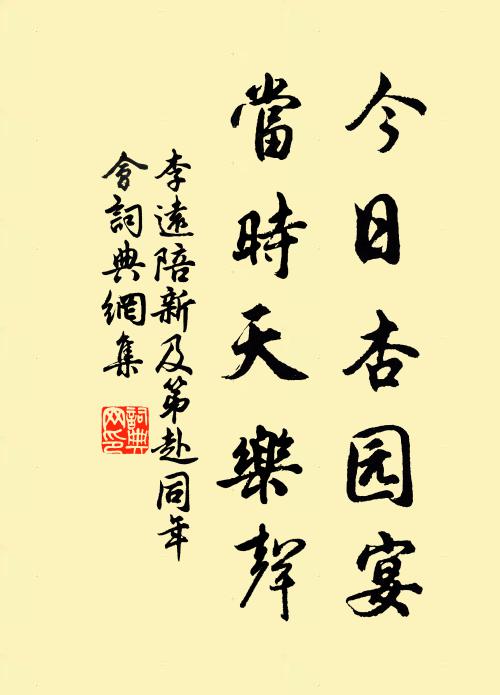 今日杏园宴
當時天樂聲
李遠陪新及第赴同年
會詞典網集
詞典
网印